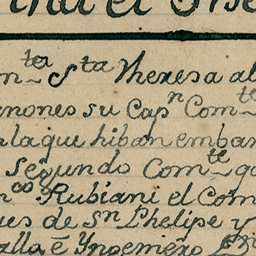 m^te S^ta Theresa al
nones su Cap^n Com^te
la que hiban embar
segundo Com^te
^co Rubiani el Com
ues de S^n Phelipe y
alla é Yngeniero